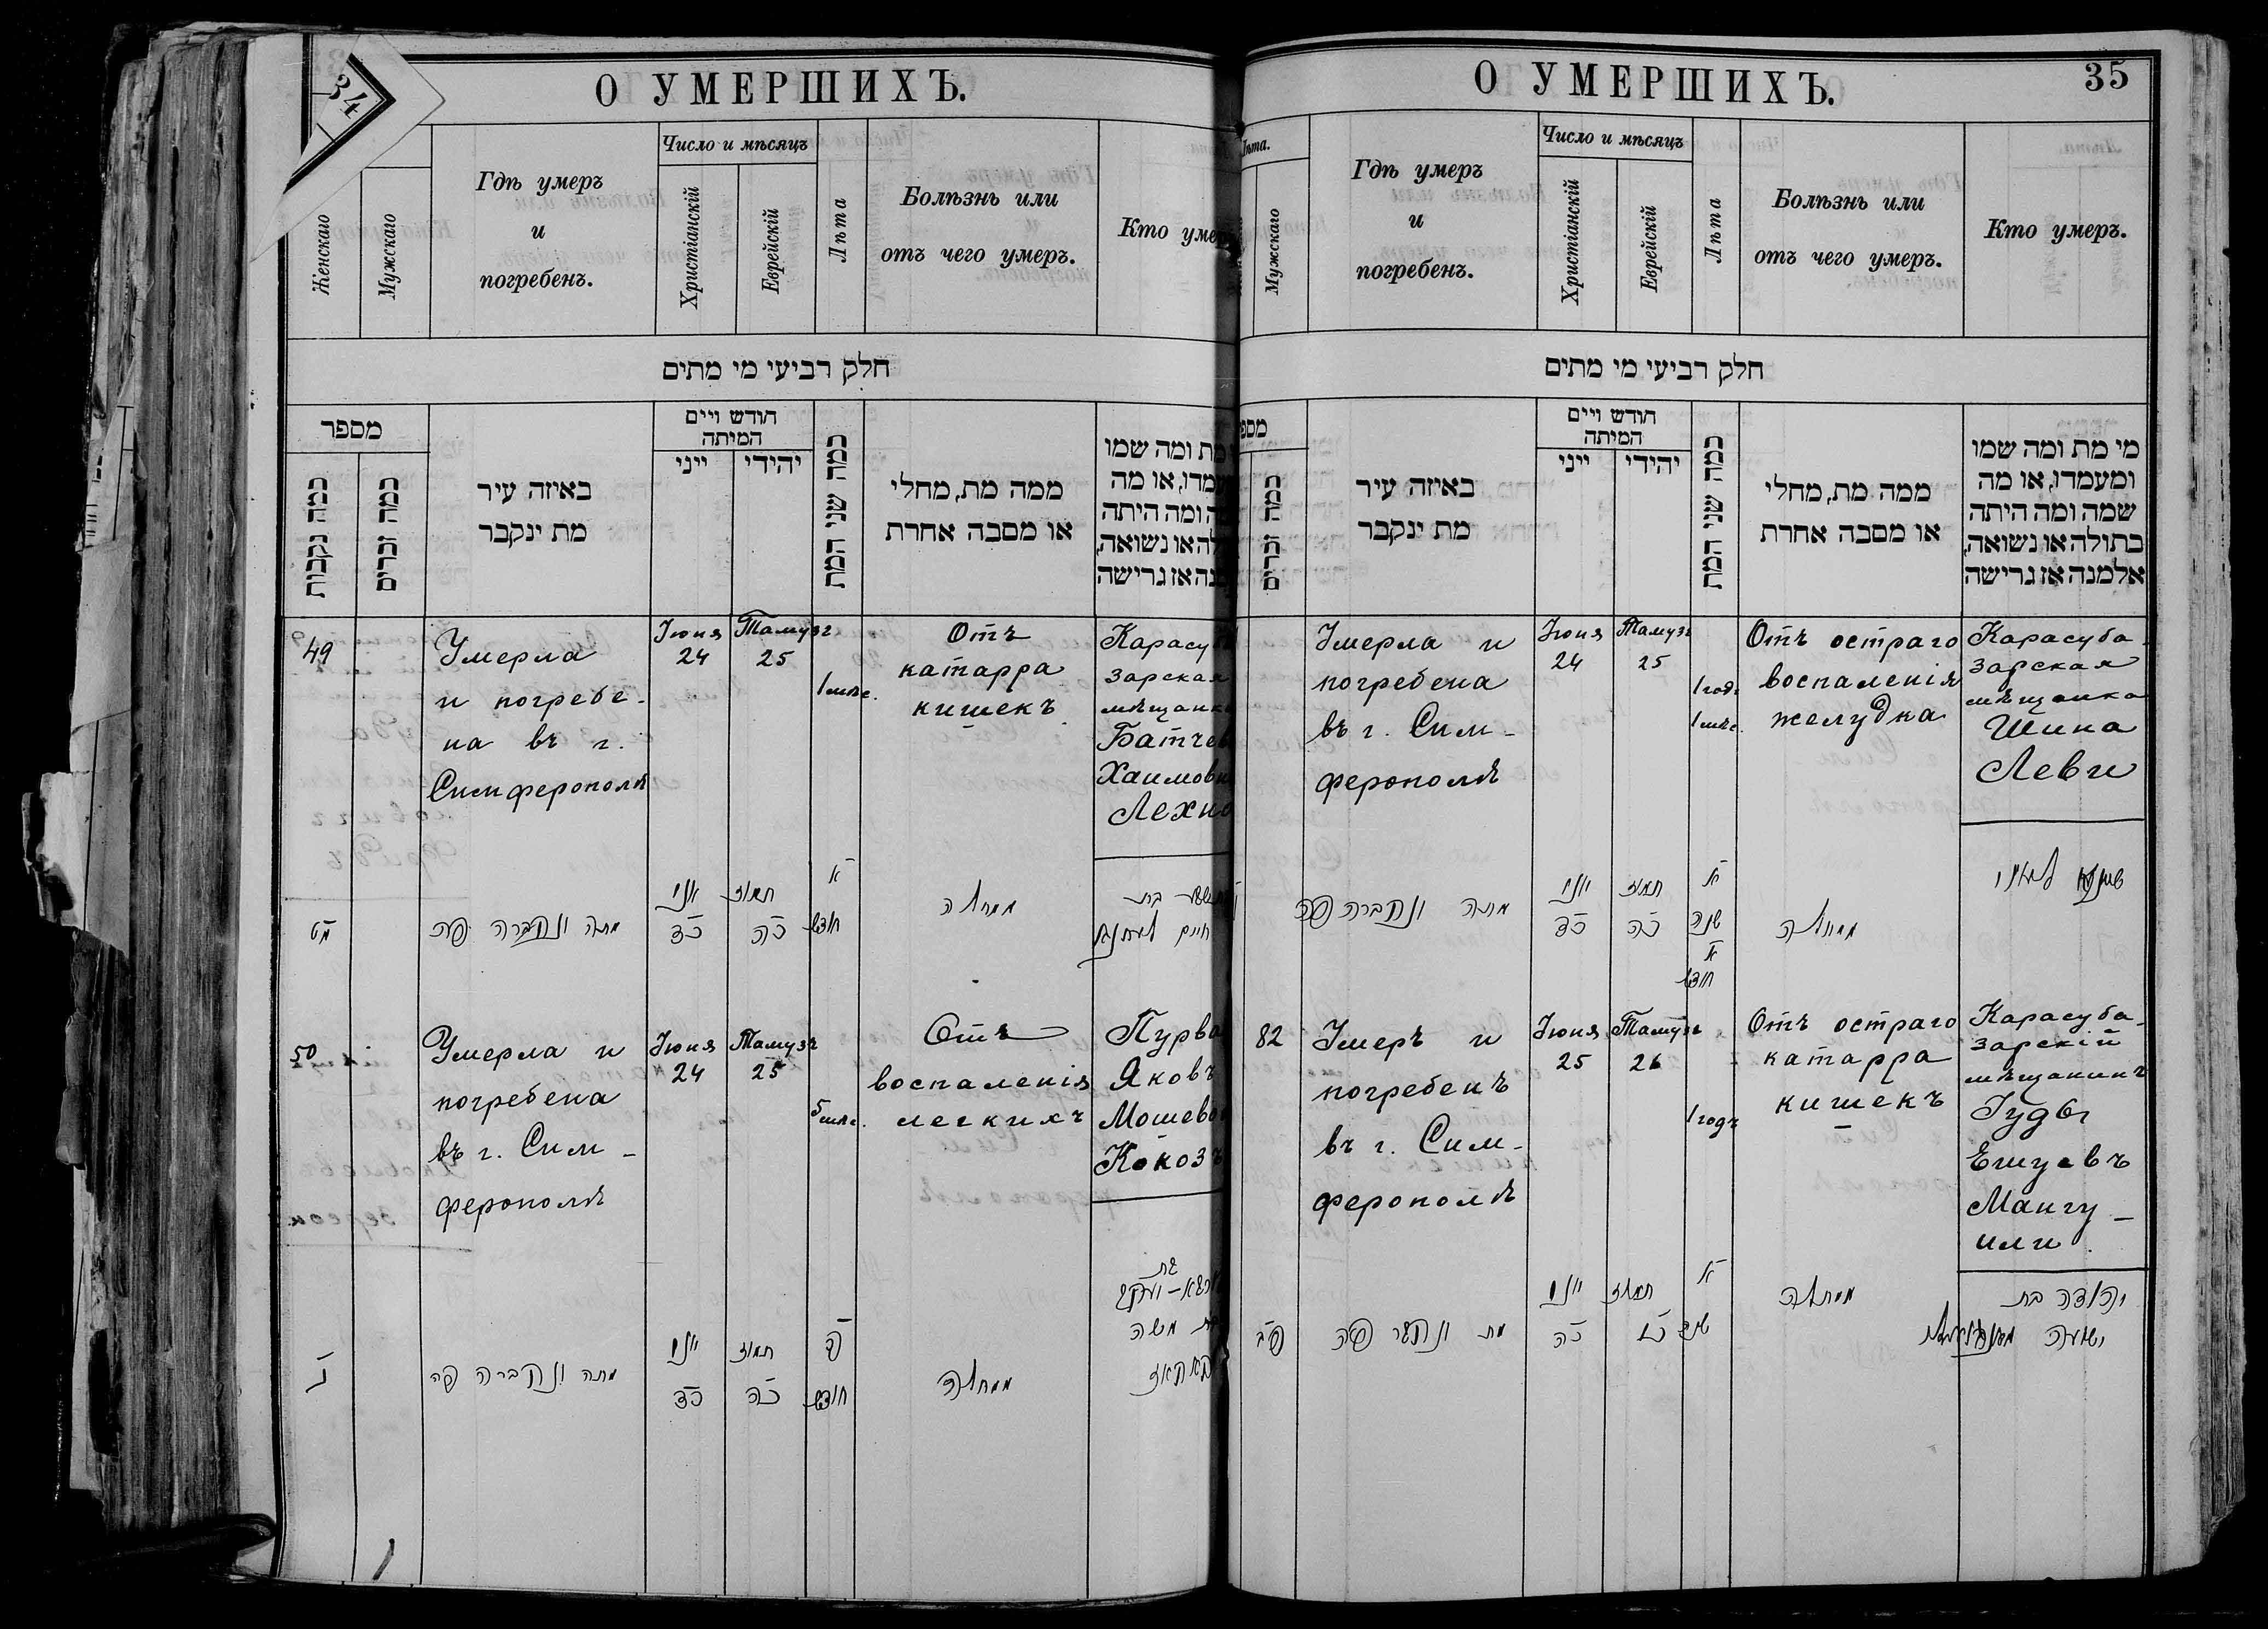 34
О УМЕРШИХЪ.
Женскаго
Мужскаго
Гдѣ умеръ
и
погребенъ.
Число и мѣсяцъ
Христіанскій
Еврейскій
Лѣта
Болѣзнь или
отъ чего умеръ.
Кто умер
חלק רביעי מי מתים
מספר
כמה נקבות
כמה זכרים
באיזה עיר
מת ינקבר
חודש ויים
המיתה
ייני
יהידי
כמה שני המת
ממה מת, מחלי
או מסבה אחרת
מת ומה שמו
עמדו, או מה
ה ומה היתה
לה או נשואה,
נה אז גרישה
49
Умерла
и погребе-
на въ г.
Симферополѣ
Іюня
24
Тамузъ
25
1 мѣс.
Отъ
катарра
кишекъ
Карасуб
зарская
мѣщанк
Батчев
Хаимовн
Лехно
מט
מתה ונקברה פה
יוני
כד
תמוז
כה
א
חודש
ממחלה
בת
חיים
50
Умерла и
погребена
въ г. Сим-
ферополѣ
Іюня
24
Тамузъ
25
5 мѣс.
Отъ
воспаленія
легкихъ
Пурва
Яковъ
Мошево
Кокозъ
נ
מתה ונקברה פה
יוני
כד
תמוז
כה
ה
חודש
ממחלה
בת
בת משה
קאקאז
35
О УМЕРШИХЪ.
Лѣта.
Мужскаго
Гдѣ умеръ
и
погребенъ.
Число и мѣсяцъ
Христіанскій
Еврейскій
Лѣта
Болѣзнь или
отъ чего умеръ.
Кто умеръ.
חלק רביעי מי מתים
מספ
כמה זכרים
באיזה עיר
מת ינקבר
חודש ויים
המיתה
ייני
יהידי
כמה שני המת
ממה מת, מחלי
או מסבה אחרת
מי מת ומה שמו
ומעמדו, או מה
שמה ומה היתה
בתולה או נשואה,
אלמנה אז גרישה
Умерла и
погребена
въ г. Сим-
ферополѣ
Іюня
24
Тамузъ
25
1 годъ
1 мѣс.
Отъ остраго
воспаленія
желудка
Карасуба-
зарская
мѣщанка
Шина
Леви
מתה ונקברה פה
יוני
כד
תמוז
כה
א
שנה
א
חודש
ממחלה
82
Умеръ и
погребенъ
въ г. Сим-
ферополѣ
Іюня
25
Тамузъ
26
1 годъ
Отъ остраго
катарра
кишекъ
Карасуба-
зарскій
мѣщанинъ
Іуды
Ешуевъ
Мангу-
или
פב
מת ונקבר פה
יוני
כה
תמוז
כו
א
שנה
ממחלה
יהודה בת
ישועה